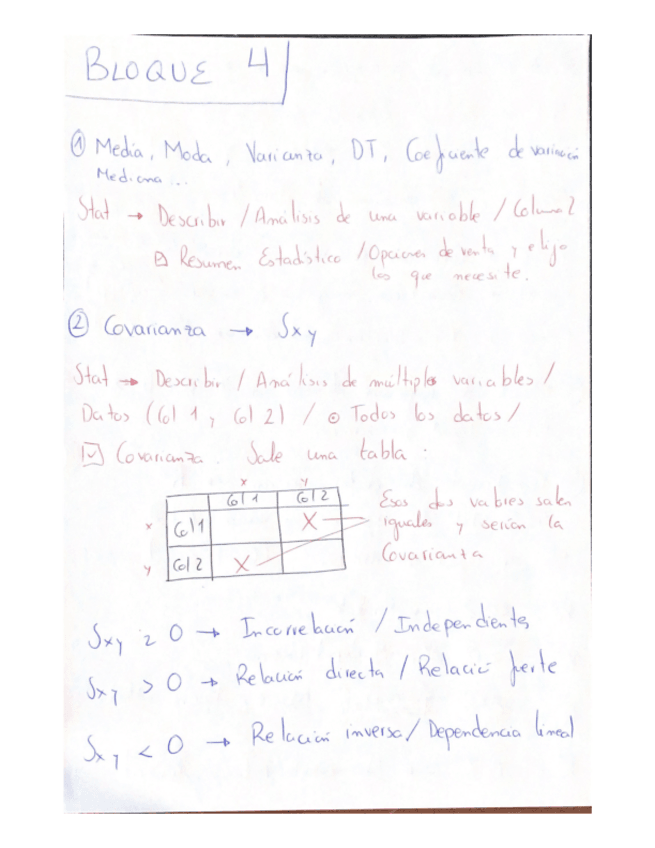 BLOQUE 4
① Media, Moda, Varianza, DT, Coeficiente de variación
Mediana...
Stat → Describir / Análisis de una variable / Columna 2
Resumen Estadístico / Opciones de venta y elijo
los que necesite.
② Covarianza → Sxy
Stat → Describir / Análisis de múltiples variables /
Datos (Col 1, Col 2) / ⊙ Todos los datos /
☑ Covarianza. Sale una tabla:
x y
Col 1 Col 2
x Col 1 X
y Col 2 X
Esos dos valores salen
iguales y serían la
Covarianza
Sxy = 0 → Incorrelación / Independientes
Sxy > 0 → Relación directa / Relació fuerte
Sxy < 0 → Relación inversa / Dependencia lineal